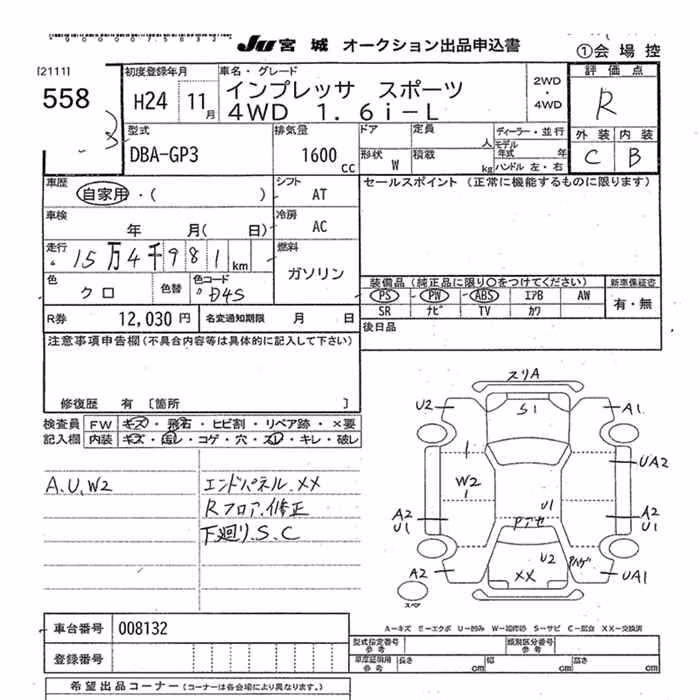 JU 宮城 オークション出品申込書
①会場控
[2111]
558
初度登録年月
H24 11月
車名・グレード
インプレッサ スポーツ
4WD 1.6i-L
2WD
・
4WD
評価点
R
外装 内装
C B
型式
DBA-GP3
排気量
1600cc
ドア 定員 人
形状 W 積載 kg
ディーラー・並行
モデル年式 年
ハンドル 左・右
車歴
自家用・( )
シフト
AT
セールスポイント (正常に機能するものに限ります)
車検
年 月( 日)
冷房
AC
走行
15万4千981km
燃料
ガソリン
色
クロ
色替
色コード
D4S
装備品 (純正品に限り○をつけてください)
新車保証書
PS PW ABS エアB AW
有・無
SR ナビ TV カワ
R券 12,030円
名変通知期限 月 日
後日品
注意事項申告欄(不具合内容等は具体的に記入して下さい)
修復歴 有 [箇所 ]
検査員記入欄
FW キズ・飛石・ヒビ割・リペア跡・×要
内装 キズ・汚レ・コゲ・穴・スレ・キレ・破レ
A.U.W2
エンドパネル.XX
Rフロア.修正
下廻り.S.C
スリA
U2
S1
A1
UA2
W2
A2
U1
U1
A2
U1
A2
U2
XX
UA1
スペア
A－キズ E－エクボ U－凹み W－補修跡 S－サビ C－腐食 XX－交換済
車台番号 008132
登録番号
型式指定番号 参考
類別区分番号 参考
車庫証明用 参考
長さ cm
幅 cm
高さ cm
希望出品コーナー (コーナーは各会場により異なります。)